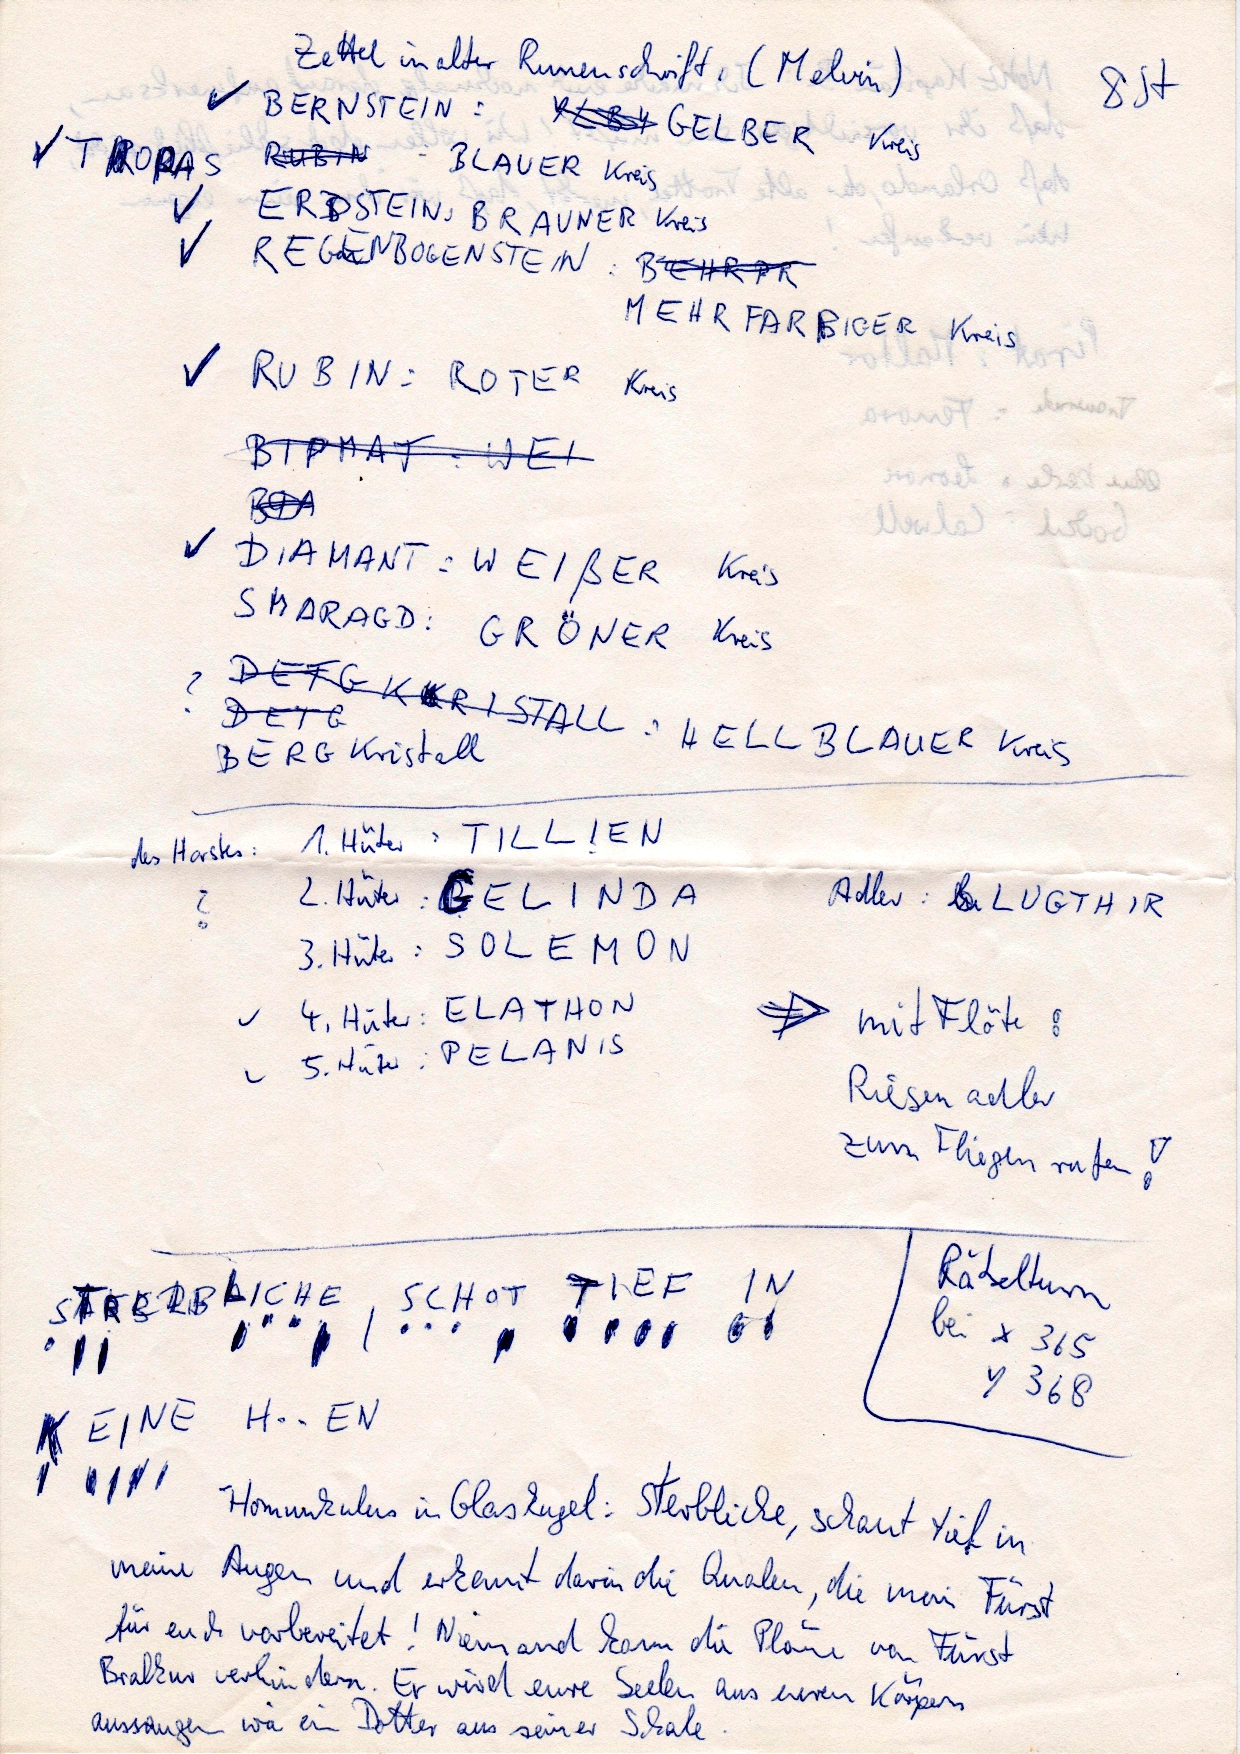 Zettel in alter Runenschrift: (Melvin)
8 St
✓ BERNSTEIN: GELBER Kreis
✓ TOPAS RUBIN - BLAUER Kreis
✓ ERDSTEIN: BRAUNER Kreis
✓ REGENBOGENSTEIN:
MEHRFARBIGER Kreis
✓ RUBIN: ROTER Kreis
: WEI
✓ DIAMANT: WEIßER Kreis
SMARAGD: GRÖNER Kreis
? DETG KRISTALL : HELLBLAUER Kreis
DETG
BERG Kristall
des Horstes: 1. Hüter: TILLIEN
? 2. Hüter: GELINDA Adler: LUGTHIR
3. Hüter: SOLEMON
✓ 4. Hüter: ELATHON
✓ 5. Hüter: PELANIS
⇒ mit Flöte:
Riesenadler
zum Fliegen rufen!
STERBLICHE, SCHOT TIEF IN
Rätselturm
bei x 365
y 368
KEINE H..EN
Homunkulus in Glaskugel: Sterbliche, schaut tief in
meine Augen und erkennt darin die Qualen, die mein Fürst
für euch vorbereitet! Niemand kann die Pläne von Fürst
Bralkur verhindern. Er wird eure Seelen aus euren Körpern
aussaugen wie ein Dotter aus seiner Schale.